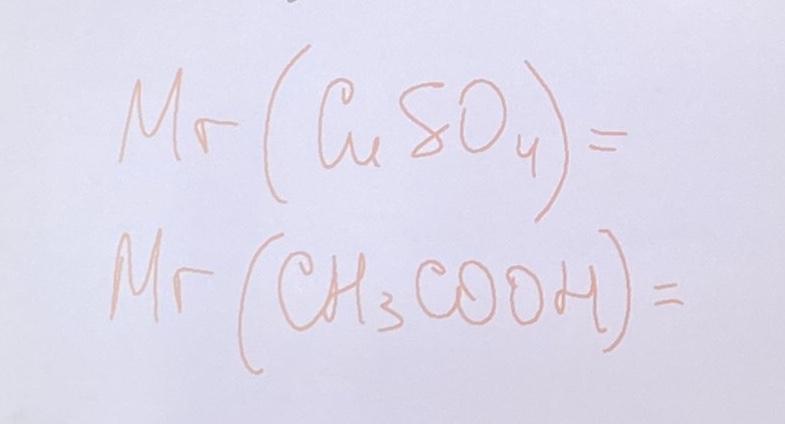 Mr (CuSO₄) =
Mr (CH₃COOH) =